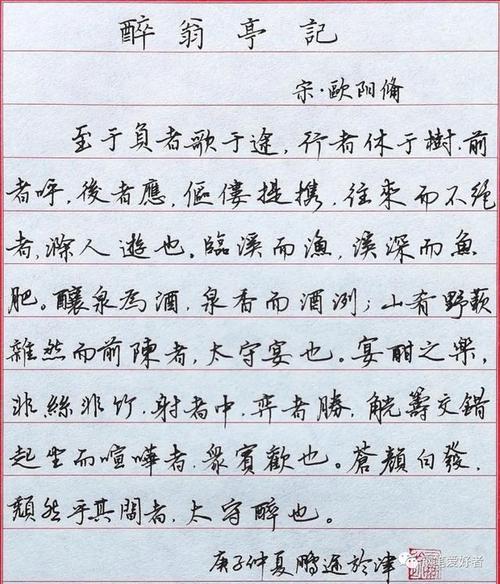 醉翁亭記
宋·歐阳脩
至于負者歌于途，行者休于樹，前
者呼，後者應，傴僂提携，往來而不絕
者，滁人遊也。臨溪而漁，溪深而魚
肥。釀泉為酒，泉香而酒洌；山肴野蔌
雜然而前陳者，太守宴也。宴酣之樂，
非絲非竹，射者中，弈者勝，觥籌交錯
起坐而喧嘩者，衆賓歡也。蒼顏白發，
頹然乎其間者，太守醉也。
庚子仲夏鵬逐於津
笔爱好者